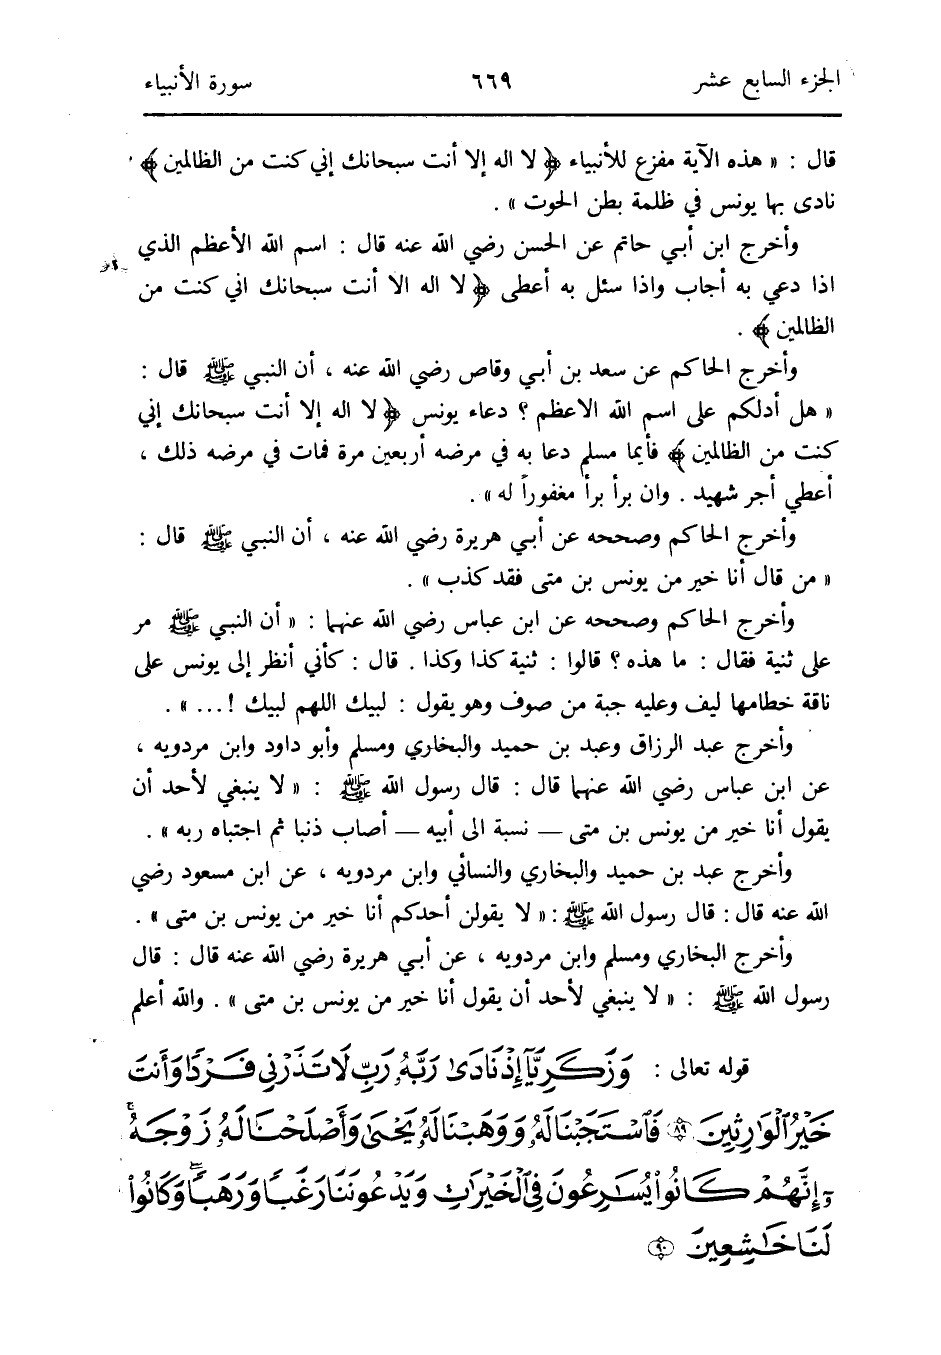 الجزء السابع عشر ٦٦٩ سورة الأنبياء
قال : « هذه الآية مفزع للأنبياء ﴿ لا اله إلا أنت سبحانك إني كنت من الظالمين ﴾
نادى بها يونس في ظلمة بطن الحوت » .
وأخرج ابن أبي حاتم عن الحسن رضي الله عنه قال : اسم الله الأعظم الذي
اذا دعي به أجاب واذا سئل به أعطى ﴿ لا اله الا أنت سبحانك اني كنت من
الظالمين ﴾ .
وأخرج الحاكم عن سعد بن أبي وقاص رضي الله عنه ، أن النبي ﷺ قال :
« هل أدلكم على اسم الله الاعظم ؟ دعاء يونس ﴿ لا اله إلا أنت سبحانك إني
كنت من الظالمين ﴾ فأيما مسلم دعا به في مرضه أربعين مرة فمات في مرضه ذلك ،
أعطي أجر شهيد . وان برأ برأ مغفوراً له » .
وأخرج الحاكم وصححه عن أبي هريرة رضي الله عنه ، أن النبي ﷺ قال :
« من قال أنا خير من يونس بن متى فقد كذب » .
وأخرج الحاكم وصححه عن ابن عباس رضي الله عنهما : « أن النبي ﷺ مر
على ثنية فقال : ما هذه ؟ قالوا : ثنية كذا وكذا . قال : كأني أنظر إلى يونس على
ناقة خطامها ليف وعليه جبة من صوف وهو يقول : لبيك اللهم لبيك !... » .
وأخرج عبد الرزاق وعبد بن حميد والبخاري ومسلم وأبو داود وابن مردويه ،
عن ابن عباس رضي الله عنهما قال : قال رسول الله ﷺ : « لا ينبغي لأحد أن
يقول أنا خير من يونس بن متى — نسبة الى أبيه — أصاب ذنبا ثم اجتباه ربه » .
وأخرج عبد بن حميد والبخاري والنسائي وابن مردويه ، عن ابن مسعود رضي
الله عنه قال : قال رسول الله ﷺ : « لا يقولن أحدكم أنا خير من يونس بن متى » .
وأخرج البخاري ومسلم وابن مردويه ، عن أبي هريرة رضي الله عنه قال : قال
رسول الله ﷺ : « لا ينبغي لأحد أن يقول أنا خير من يونس بن متى » . والله أعلم
قوله تعالى : وَزَكَرِيَّآ إِذْ نَادَىٰ رَبَّهُۥ رَبِّ لَا تَذَرْنِي فَرْدًا وَأَنتَ
خَيْرُ ٱلْوَٰرِثِينَ ٨٩ فَٱسْتَجَبْنَا لَهُۥ وَوَهَبْنَا لَهُۥ يَحْيَىٰ وَأَصْلَحْنَا لَهُۥ زَوْجَهُۥٓ ۚ
إِنَّهُمْ كَانُوا۟ يُسَٰرِعُونَ فِي ٱلْخَيْرَٰتِ وَيَدْعُونَنَا رَغَبًا وَرَهَبًا ۖ وَكَانُوا۟
لَنَا خَٰشِعِينَ ٩٠